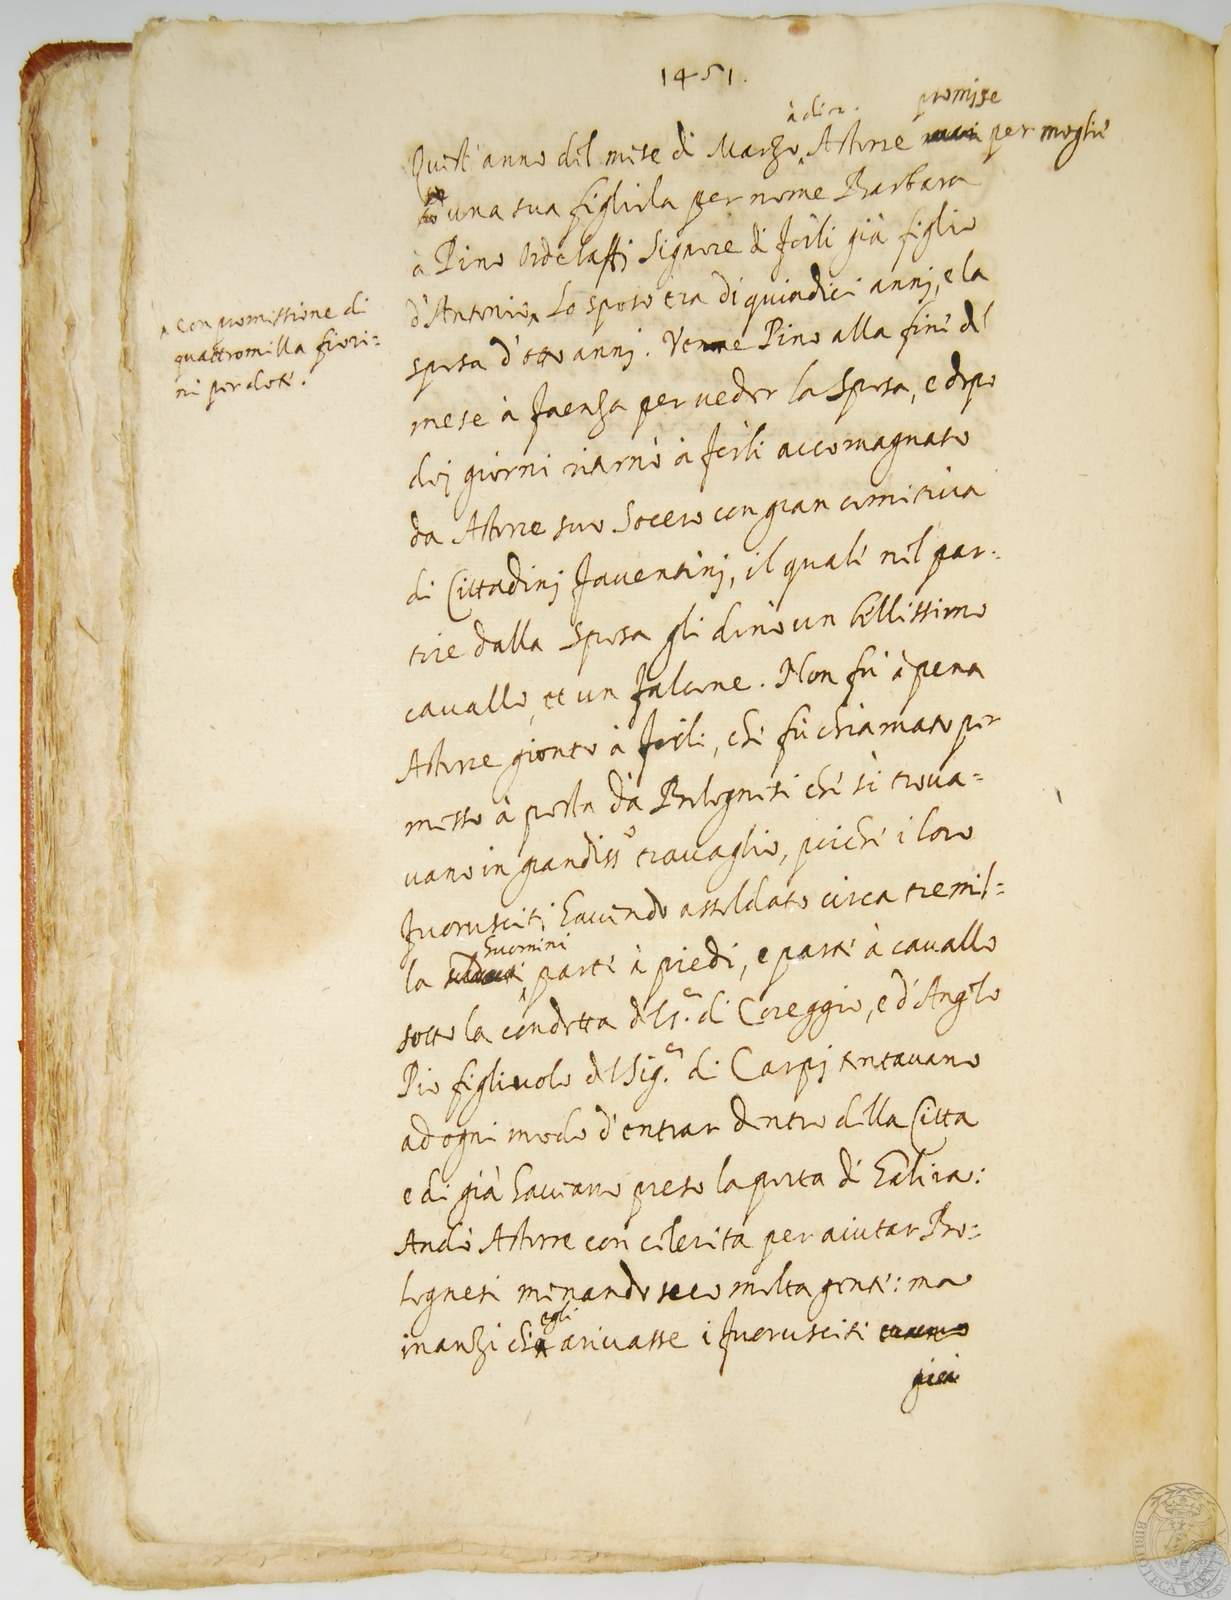 1451.
à di 2.
promise
Quest'anno del mese di Marzo Astorre per moglie
una sua figliola per nome Barbara
à Pino Ordelaffi Signore di Forlì già figlio
d'Antonio Lo sposo era di quindici annj, e la
con promissione di
quattromilla fiori=
ni per dote.
sposa d'otto annj. Venne Pino alla fine del
mese à Faenza per veder la Sposa, e dopo
doi giorni ritornò à Forlì accomagnato
da Astorre suo Socero con gran comitiva
di Cittadinj Faventinj, il quale nel par=
tire dalla Sposa gli donò un bellissimo
cavallo, et un Falcone. Non fù à pena
Astorre gionto à Forlì, che fù chiamato per
messo à posta dà Bolognesi che si trova=
vano in grandiss.o travaglio, poiche i loro
Fuorusciti havendo assoldato circa tremil=
huomini
la parte à piedi, e parte à cavallo
sotto la condotta del S.r di Coreggio, e d'Angelo
Pio figliuolo del Sig.r di Carpj tentavano
ad ogni modo d'entrar dentro della Citta
e di già havevano preso la porta di Galiera:
Andò Astorre con celerita per aiutar Bo=
lognesi menando seco molta gente: ma
egli
inanzi che arivasse i Fuorusciti
BIBLIOTECA